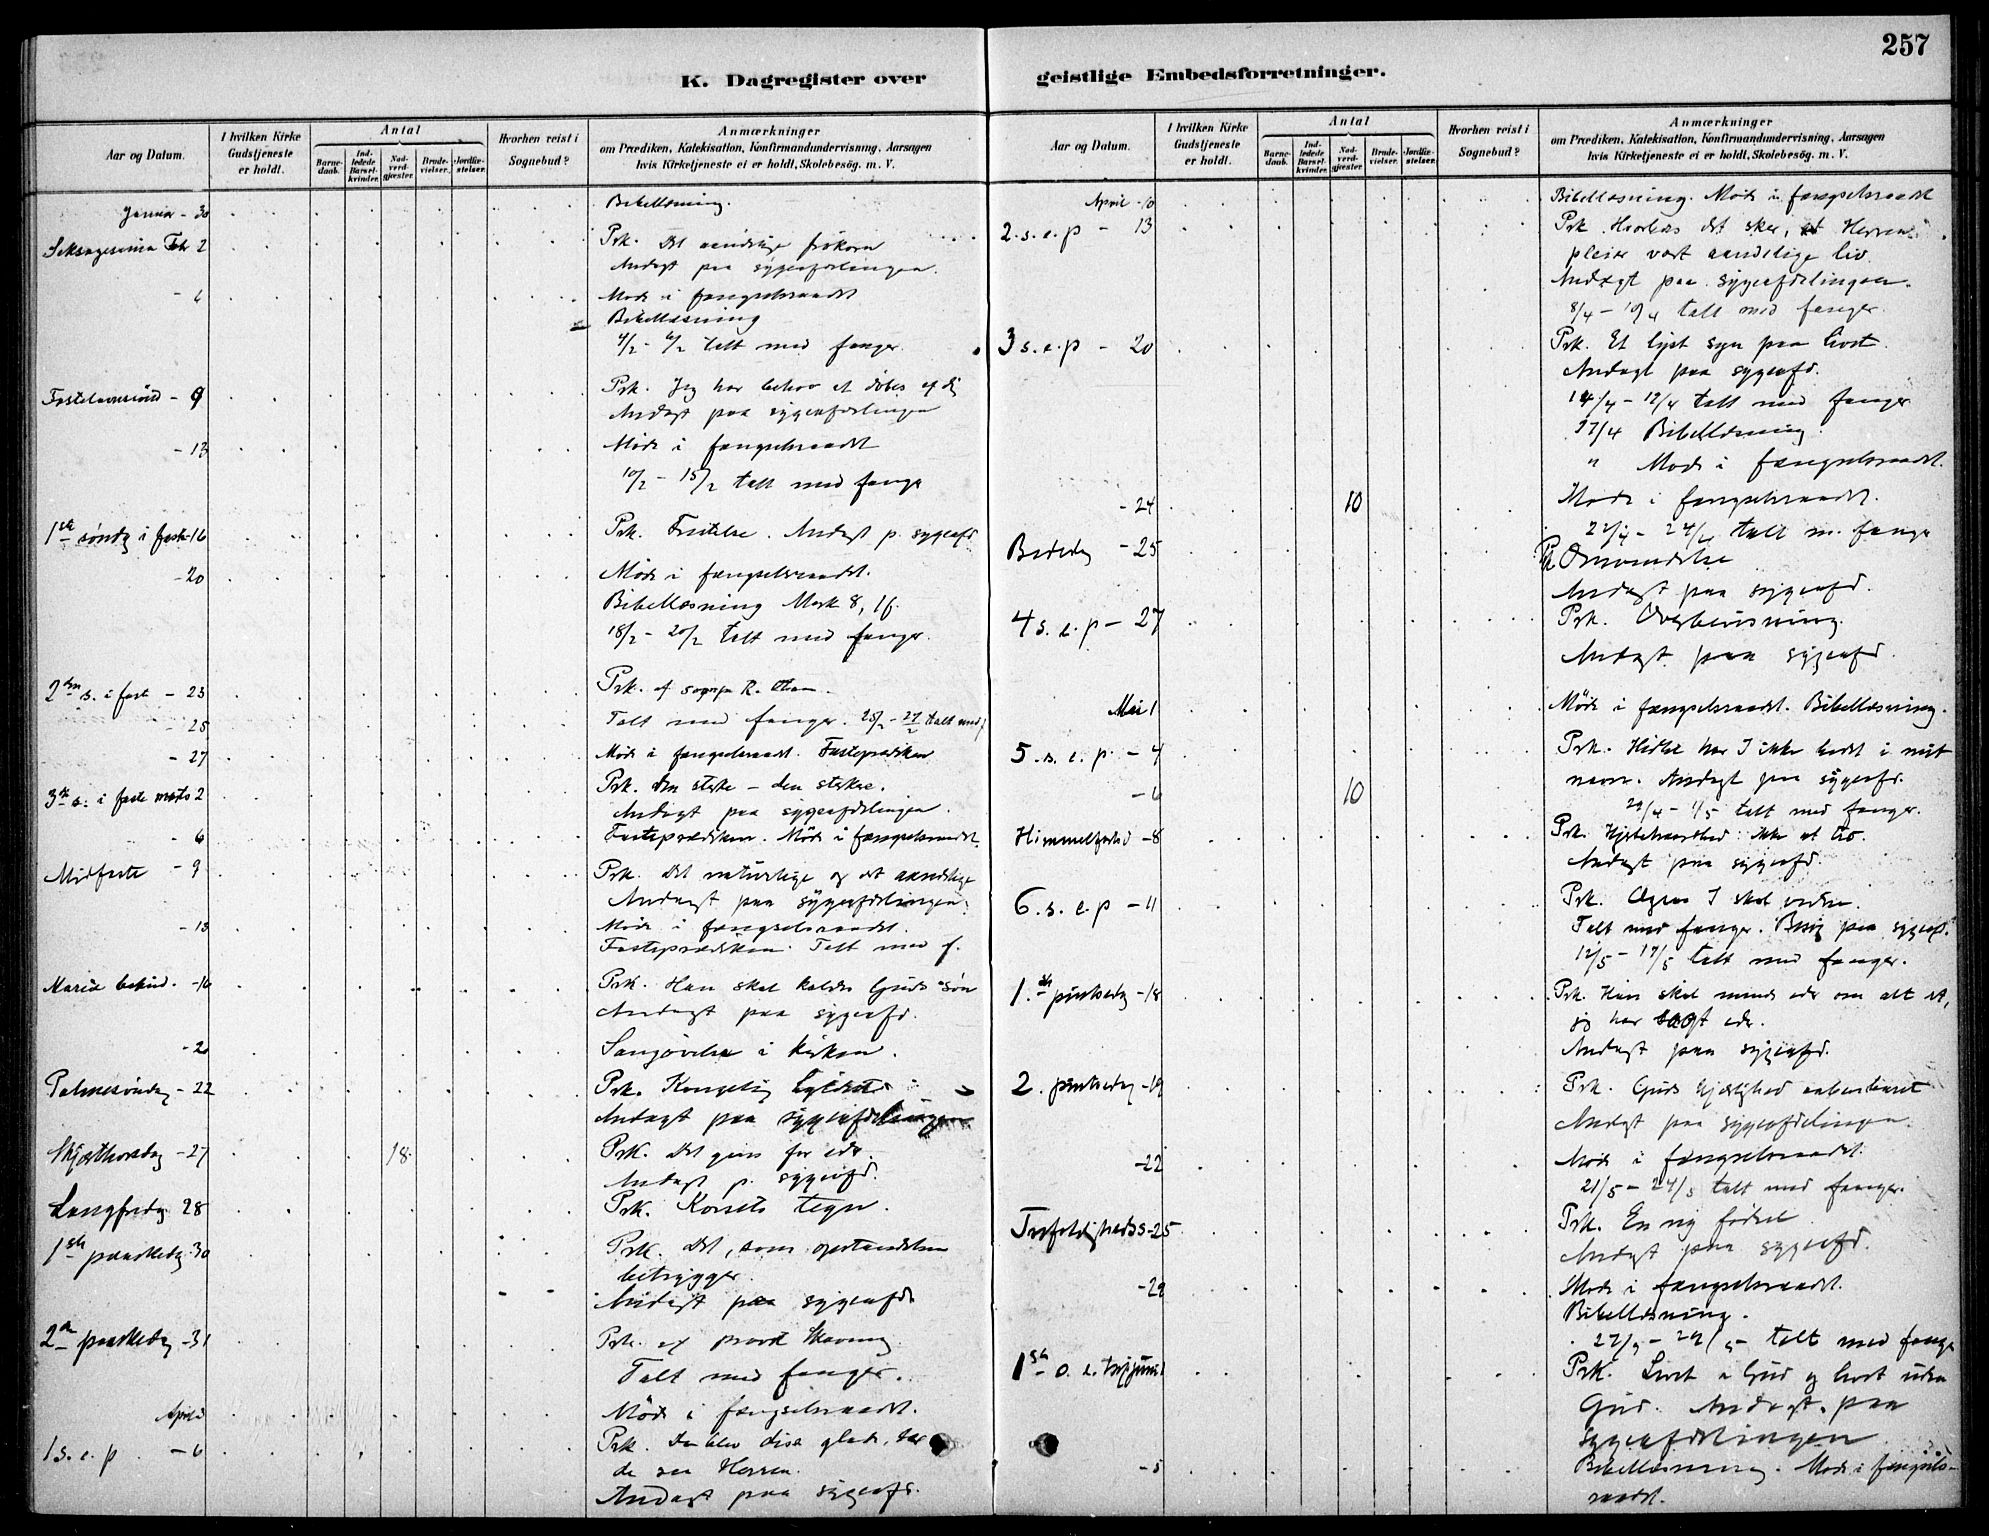 257
K. Dagregister over geistlige Embedsforretninger.
Aar og Datum.
I hvilken Kirke Gudstjeneste er holdt.
Antal
Barnedaab.
Indledede Barselkvinder.
Nadverdgjæster.
Brudevielser.
Jordfæstelser.
Hvorhen reist i Sognebud?
Anmærkninger
om Prædiken, Katekisation, Konfirmandundervisning, Aarsagen
hvis Kirketjeneste ei er holdt, Skolebesøg. m. V.
Januar - 30 Bibellæsning.
Seksagesima Feb. 2 Prk. Det aandelige frøkorn
Andagt paa sygeafdelingen.
- 6 Møde i fængselsraadet
Bibellæsning
4/2 - 6/2 talt med fanger.
Fastelavnssønd - 9 Prk. Jeg har behov at døbes af dig
Andagt paa sygeafdelingen
- 13 Møde i fængselsraadet
10/2 - 15/2 talt med fanger
1ste søndg i faste - 16 Prk. Fristelse. Andagt p. sygeafd
- 20 Møde i fængselsraadet.
Bibellæsning Mark 8, 1 f.
18/2 - 20/2 talt med fanger.
2den s. i faste - 23 Prk. af sognepr R.
- 25 Talt med fanger. 25/2 - 27/2 talt med f
- 27 Møde i fængselsraadet. Fasteprædiken
3die s. i faste marts 2 Prk. Den sterke - den sterkere.
Andagt paa sygeafdelingen.
- 6 Fasteprædiken. Møde i fængselsraadet.
Midfaste - 9 Prk. Det naturlige og det aandelige
Andagt paa sygeafdelingen.
- 13 Møde i fængselsraadet.
Fasteprædiken. Talt med f.
Mariæ bebud. - 16 Prk. Han skal kaldes Guds søn
Andagt paa sygeafd.
- 20 Sangøvelse i kirken.
Palmesøndag - 22 Prk. Kongelig
Andagt paa sygeafdelingen
Skjærthorsdag - 27 18 Prk. Det gives for eder.
Andagt p. sygeafd.
Langfredag 28 Prk. Korsets tegn.
1ste paaskedag - 30 Prk. Det, som opstandelsen
betrygger.
Andagt paa sygeafd.
2den paaskedag - 31 Prk. af
Talt med fanger.
April Møde i fængselsraadet.
1 s. e. p - 6 Prk. Da blev disc glade, da
de saa Herren.
Andagt paa sygeafd.
Aar og Datum.
I hvilken Kirke Gudstjeneste er holdt.
Antal
Barnedaab.
Indledede Barselkvinder.
Nadverdgjæster.
Brudevielser.
Jordfæstelser.
Hvorhen reist i Sognebud?
Anmærkninger
om Prædiken, Katekisation, Konfirmandundervisning, Aarsagen
hvis Kirketjeneste ei er holdt, Skolebesøg. m. V.
April - 10 Bibellæsning. Møde i fængselsraadet
2. s. e. p - 13 Prk. Hvorledes det sker, at Herren
pleier vort aandelige liv.
Andagt paa sygeafdelingen.
8/4 - 10/4 talt med fanger.
3 s. e. p - 20 Prk. Et lyst syn paa livet.
Andagt paa sygeafd.
14/4 - 17/4 talt med fanger
17/4 Bibellæsning.
" Møde i fængselsraadet.
- 24 10 Møde i fængselsraadet.
22/4 - 24/4 talt m. fange
Bededag - 25 Prk Omvendelse
Andagt paa sygeafd.
4 s. e. p - 27 Prk. Overbevisning.
Andagt paa sygeafd.
Mai 1 Møde i fængselsraadet. Bibellæsning.
5. s. e. p. - 4 Prk. Hidtil har I ikke bedt i mit
navn. Andagt paa sygeafd.
- 6 10 29/4 - 1/5 talt med fanger.
Himmelfartsd - 8 Prk. Hjertehaardhed: ikke at tro.
Andagt paa sygeafd.
6. s. e. p - 11 Prk. Ogsaa I skal vidne.
Talt med fanger. Besøg paa sygeafd.
12/5 - 17/5 talt med fanger.
1. ste pinsedag - 18 Prk. Han skal minde eder om alt det,
jeg har sagt eder.
Andagt paa sygeafd.
2. pinsedag - 19 Prk. Guds kjærlighed aabenbaret
Andagt paa sygeafdelingen.
- 22 Møde i fængselsraadet.
21/5 - 24/5 talt med fanger.
Trefoldigheds s - 25 Prk. En ny fødsel
Andagt paa sygeafd.
- 29 Møde i fængselsraadet.
Bibellæsning.
27/5 - 29/5 talt med fange
1ste s. e. tref juni 1 Prk. Livet i Gud og livet uden
Gud. Andagt paa
sygeafdelingen
- 5 Bibellæsning. Møde i fængsels-
raadet.